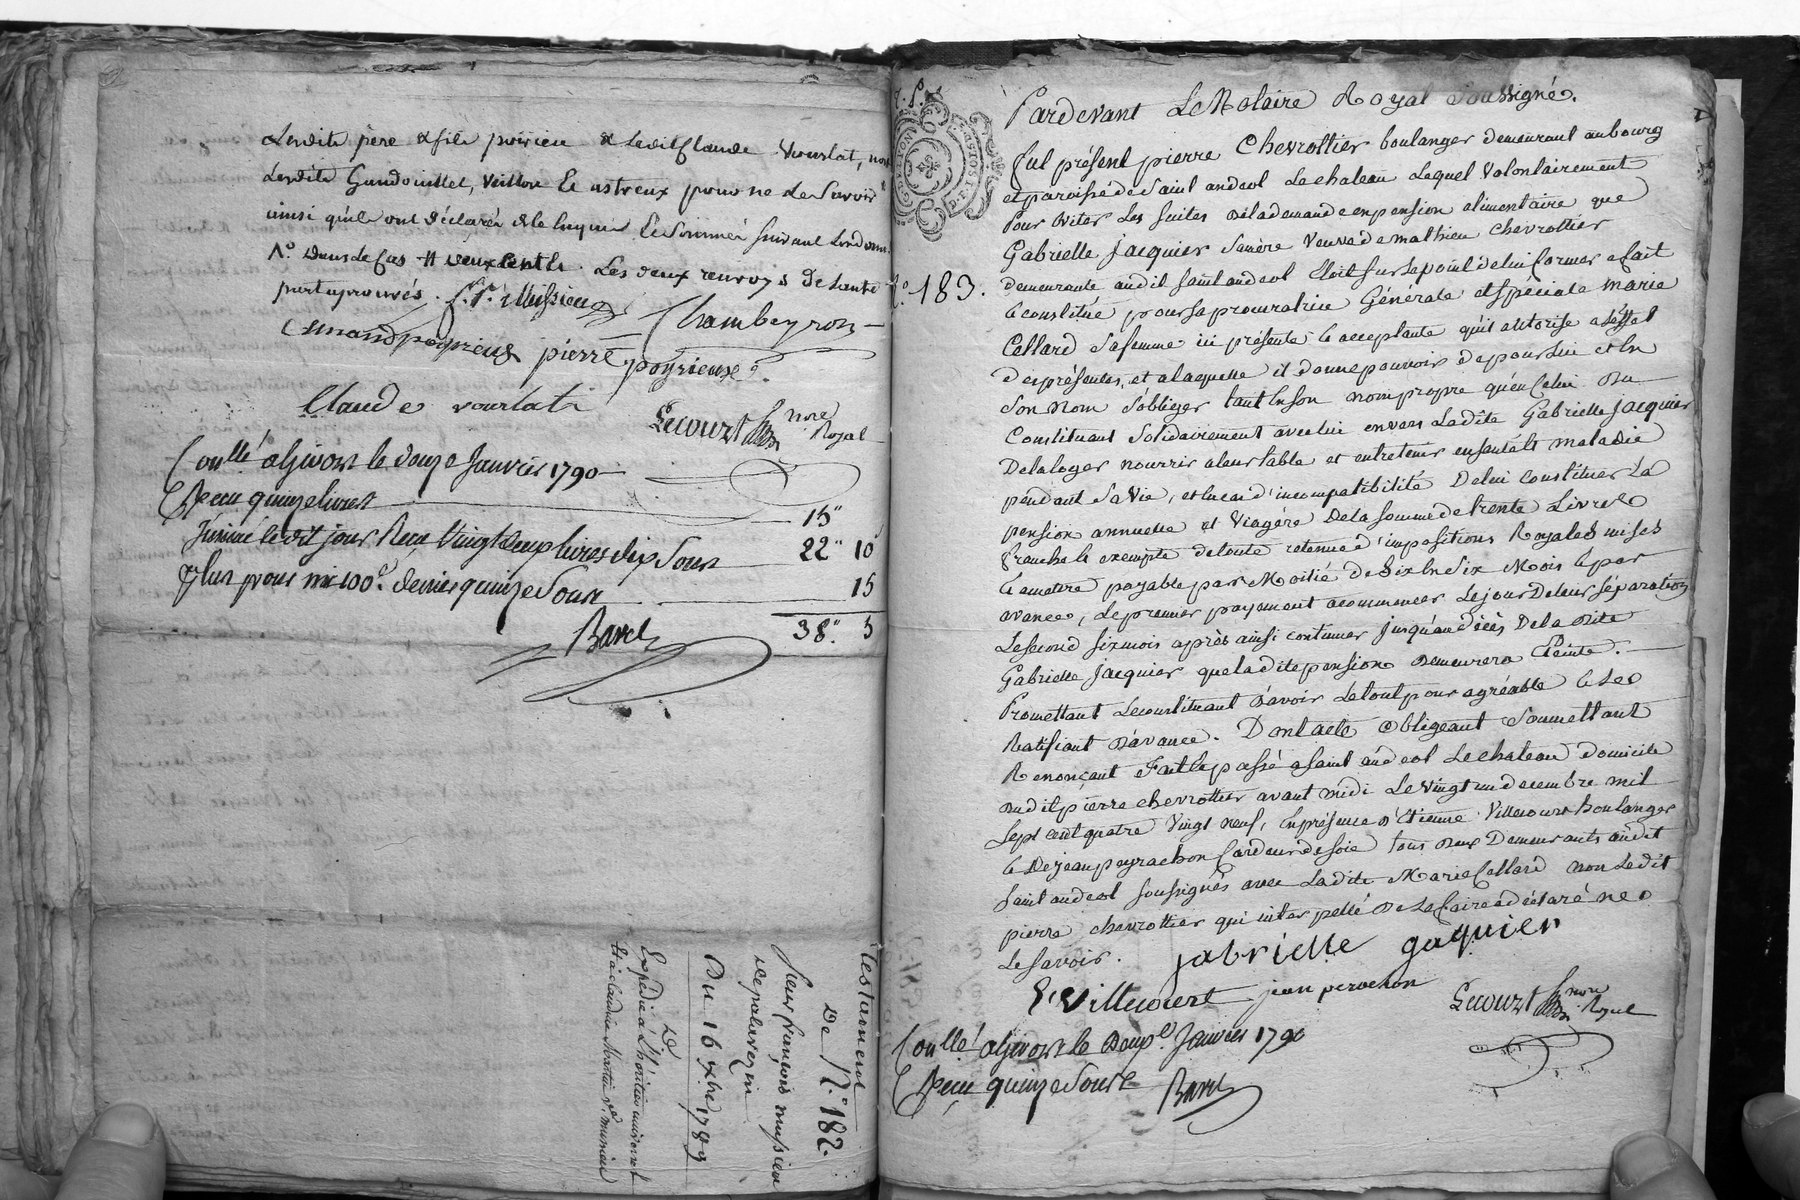 Lesdits père & fils poirieu & Ledit Claude Vourlat, non
Lesdits Gandouillet, Veillon & astreux pour ne Le Savoir
ainsi qu'ils ont déclarés de ce enquis & Sommés suivant Lordonn
Dans le Cas deux cents. Les deux renvoys de lautre
part aprouvés. Mussieu
Chambeyron
pierre poyrieux
Claude vourlat
Lecourt nore Royal
Conllé a Givors le douze Janvier 1790
Reçu quinze livres 15"
Insinué ledit jour Reçu Vingt deux livres dix Sous 22" 10
Plus pour mi 100e. denier quinze Sous 15
38" 5
Barel
testament
De N.° 182.
Sieur françois mussieu
de palavezin
Du 16 xbre 1789
Expédié à L'héritier
et a claudine Martin ve. mussieu
N.° 183.
Pardevant Le Notaire Royal Soussigné.
fut présent pierre Chevrottier boulanger demeurant au bourg
et paroisse de Saint andeol Le chateau Lequel Volontairement
Pour Eviter Les suites de la demande en pension alimentaire que
Gabrielle Jacquier Sa mère Veuve de mathieu Chevrottier
demeurante audit saint andeol Etoit sur le point de lui former a fait
& constitué pour sa procuratrice Générale et spéciale marie
Cellard Sa femme ici présente & acceptante qu'il authorise a l'effet
des présentes, et a laquelle il donne pouvoir de pour lui et En
Son nom S'obliger tant En son nom propre qu'en Celui Du
Constituant Solidairement avec lui envers Ladite Gabrielle Jacquier
De la loger nourrir a leur table et entretenir en santé & maladie
pendant Sa Vie, et En cas d'incompatibilité De lui constituer La
pension annuelle et Viagére De la somme de trente Livres
franche & exempte de toute retenue d'impositions Royales mises
& a mettre payable par Moitié de Six En Six Mois & par
avance, Le premier payement a commencer Le jour De leur Séparation
Le second six mois après ainsi continuer jusqu'au décès De la dite
Gabrielle Jacquier que la dite pension Demeurera Eteinte.
Promettant Le constituant D'avoir Le tout pour agréable & Le
Ratifiant D'avance. Dont acte obligeant Soumettant
Renonçant Fait & passé a saint andeol Le chateau domicile
Dudit pierre chevrottier avant midi Le vingt un decembre mil
Sept cent quatre Vingt neuf, En présence d'Etienne Villecourt boulanger
& De jean peyrachon Cardeur de soie tous deux Demeurants audit
Saint andeol soussignés avec Ladite Marie Cellard non Ledit
pierre chevrottier qui interpellé De Le faire a déclaré ne
Le savoir. gabrielle gaquier
E. Villecourt jean perachon
Lecourt nore Royal
Conllé a Givors le Douze Janvier 1790
Reçu quinze Sous Barel